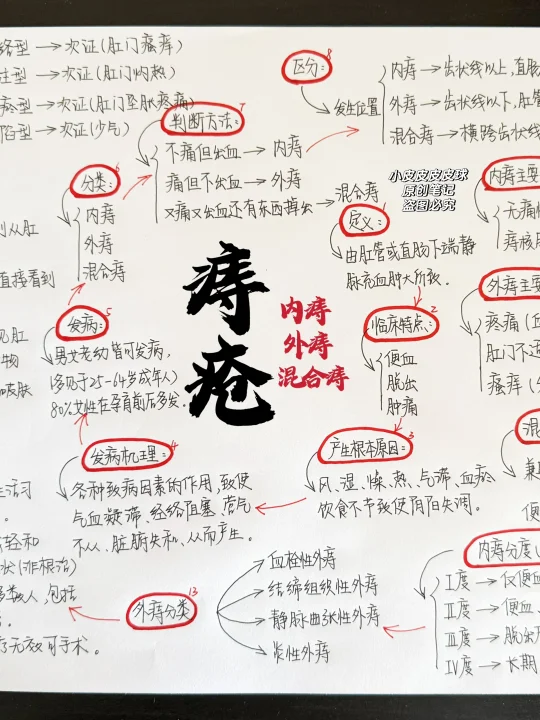 络型→次证(肛门瘙痒)
注型→次证(肛门灼热)
瘀型→次证(肛门坠胀疼痛)
陷型→次证(少气)
区分: 8
发生位置
内痔→齿状线以上,直肠
外痔→齿状线以下,肛管
混合痔→横跨齿状线
判断方法: 7
不痛但出血→内痔
痛但不出血→外痔
又痛又出血还有东西掉出→混合痔
小皮皮皮皮球
原创笔记
盗图必究
分类: 6
内痔
外痔
混合痔
定义: 1
由肛管或直肠下端静
脉充血肿大所致。
内痔主要
无痛
痔核
外痔主要
疼痛(血
肛门不适
瘙痒
到从肛
直接看到
见肛
物
皮肤
痔
疮
内痔
外痔
混合痔
发病: 5
男女老幼皆可发病,
(多见于25-64岁成年人)
80%女性在孕育前后多发。
临床特点: 2
便血
脱出
肿痛
产生根本原因: 3
风、湿、燥、热、气滞、血瘀
饮食不节致使阴阳失调。
发病机理: 4
各种致病因素的作用,致使
气血凝滞、经络阻塞、营气
不从、脏腑失和、从而产生。
混
兼
便
生活习
。
轻和
状(非根治)
多数人,包括
疗无效可手术。
外痔分类 13
血栓性外痔
结缔组织性外痔
静脉曲张性外痔
炎性外痔
内痔分度(
Ⅰ度→仅便血
Ⅱ度→便血、
Ⅲ度→脱出
Ⅳ度→长期